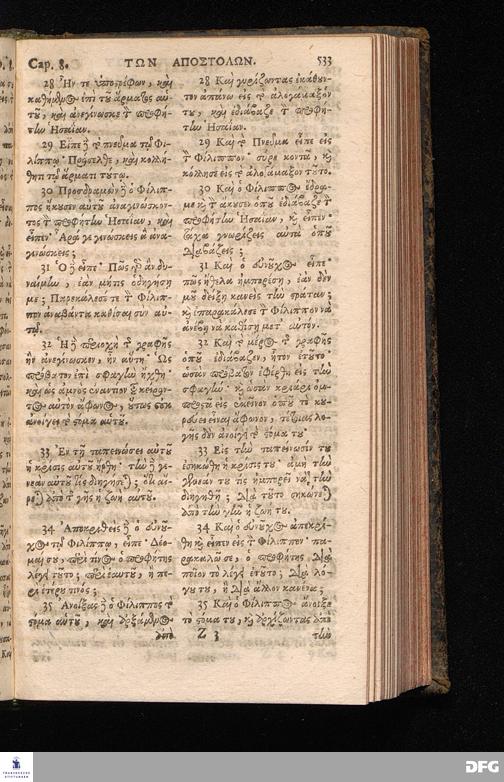 Cap. 8. ΤΩΝ ΑΠΟΣΤΟΛΩΝ. 533
28 Ἦν τε ὑποστρέφων, καὶ
καθήμενος ἐπὶ τοῦ ἅρματος αὐ-
τοῦ, καὶ ἀνεγίνωσκε τ προφή-
την Ησαΐαν.
29 Εἶπε δὲ τὸ πνεῦμα τῷ Φι-
λίππῳ· Πρόσελθε, καὶ κολλή-
θητι τῷ ἅρματι τούτῳ.
30 Προσδραμὼν δὲ ὁ Φίλιπ-
πος ἤκουσεν αὐτοῦ ἀναγινώσκον-
τος τ προφήτην Ησαΐαν, καὶ
εἶπεν· Ἆρά γε γινώσκεις ἃ ἀνα-
γινώσκεις;
31 Ὁ δὲ εἶπε· Πῶς γὰρ ἂν δυ-
ναίμην, ἐὰν μή τις ὁδηγήσῃ
με; Παρεκάλεσέ τε τ Φίλιπ-
πον ἀναβάντα καθίσαι σὺν αὐ-
τῷ.
32 Ἡ δὲ περιοχὴ τ γραφῆς
ἣν ἀνεγίνωσκεν, ἦν αὕτη· Ὡς
πρόβατον ἐπὶ σφαγὴν ἤχθη
καὶ ὡς ἀμνὸς ἐναντίον τοῦ κείρον-
τος αὐτὸν ἄφωνος, οὕτως οὐκ
ἀνοίγει τὸ στόμα αὐτοῦ.
33 Ἐν τῇ ταπεινώσει αὐτοῦ
ἡ κρίσις αὐτοῦ ἤρθη· τὴν δὲ γε-
νεὰν αὐτοῦ τίς διηγήσεται; ὅτι αἴ-
ρεται ἀπὸ τ γῆς ἡ ζωὴ αὐτοῦ.
34 Ἀποκριθεὶς δὲ ὁ εὐνοῦ-
χος τῷ Φιλίππῳ, εἶπε· Δέο-
μαί σου, περὶ τίνος ὁ προφήτης
λέγει τοῦτο; περὶ ἑαυτοῦ, ἢ πε-
ρὶ ἑτέρου τινος;
35 Ἀνοίξας δὲ ὁ Φίλιππος τὸ
στόμα αὐτοῦ, καὶ ἀρξάμενος
ἀπὸ
28 Καὶ γυρίζοντας ἐκάθουν-
τον ἀπάνω εἰς τὸ ἀλογάμαξόν
του, καὶ ἐδιάβαζε τ προφή-
την Ησαΐαν.
29 Καὶ τὸ Πνεῦμα εἶπε εἰς
τ Φίλιππον· σῦρε κοντὰ, καὶ
κολλήσε εἰς τὸ ἀλογάμαξον τοῦτο.
30 Καὶ ὁ Φίλιππος ἔδρα-
με καὶ τ ἄκουσεν ὁποῦ ἐδιάβαζε τ
προφήτην Ησαΐαν, καὶ εἶπεν·
τάχα γνωρίζεις αὐτὰ ὁποῦ
διαβάζεις;
31 Καὶ ὁ εὐνοῦχος εἶπε·
πῶς ἤθελα ἠμπορέση, ἐὰν δὲν
μοῦ δείξῃ κανεὶς τὴν στράταν;
καὶ ἐπαρακάλεσε τ Φίλιππον νὰ
ἀνέβῃ νὰ καθίσῃ μετ' αὐτόν.
32 Καὶ τὸ μέρος τ γραφῆς
ὁποῦ ἐδιάβαζεν, ἦτον ἐτοῦτο·
ὡσὰν πρόβατον ἐφέρθη εἰς τὴν
σφαγὴν· καὶ ὡσὰν ἀρνὶ ὀμ-
προστὰ εἰς ἐκεῖνον ὁποῦ τὸ κου-
ρεύει εἶναι ἄφωνον, τέτοιας λο-
γῆς δὲν ἀνοίγει τὸ στόμα του
33 Εἰς τὴν ταπείνωσίν του
ἐσηκώθη ἡ κρίσις του· ἀμὴ τὴν
γενεάν του τίς ἠμπορεῖ νὰ τὴν
διηγηθῇ; διατὶ τοῦτο σηκώνεται
ἀπὸ τὴν γῆν ἡ ζωή του.
34 Καὶ ὁ εὐνοῦχος ἀπεκρί-
θη καὶ εἶπεν εἰς τ Φίλιππον· πα-
ρακαλῶ σε, ὁ προφήτης διὰ
ποῖον τὸ λέγει ἐτοῦτο; διὰ λό-
γου του, ἢ διὰ ἄλλον κανένα;
35 Καὶ ὁ Φίλιππος ἄνοιξε
τὸ στόμα του, καὶ ἀρχίζοντας ἀπὸ
Z 3 τὴν